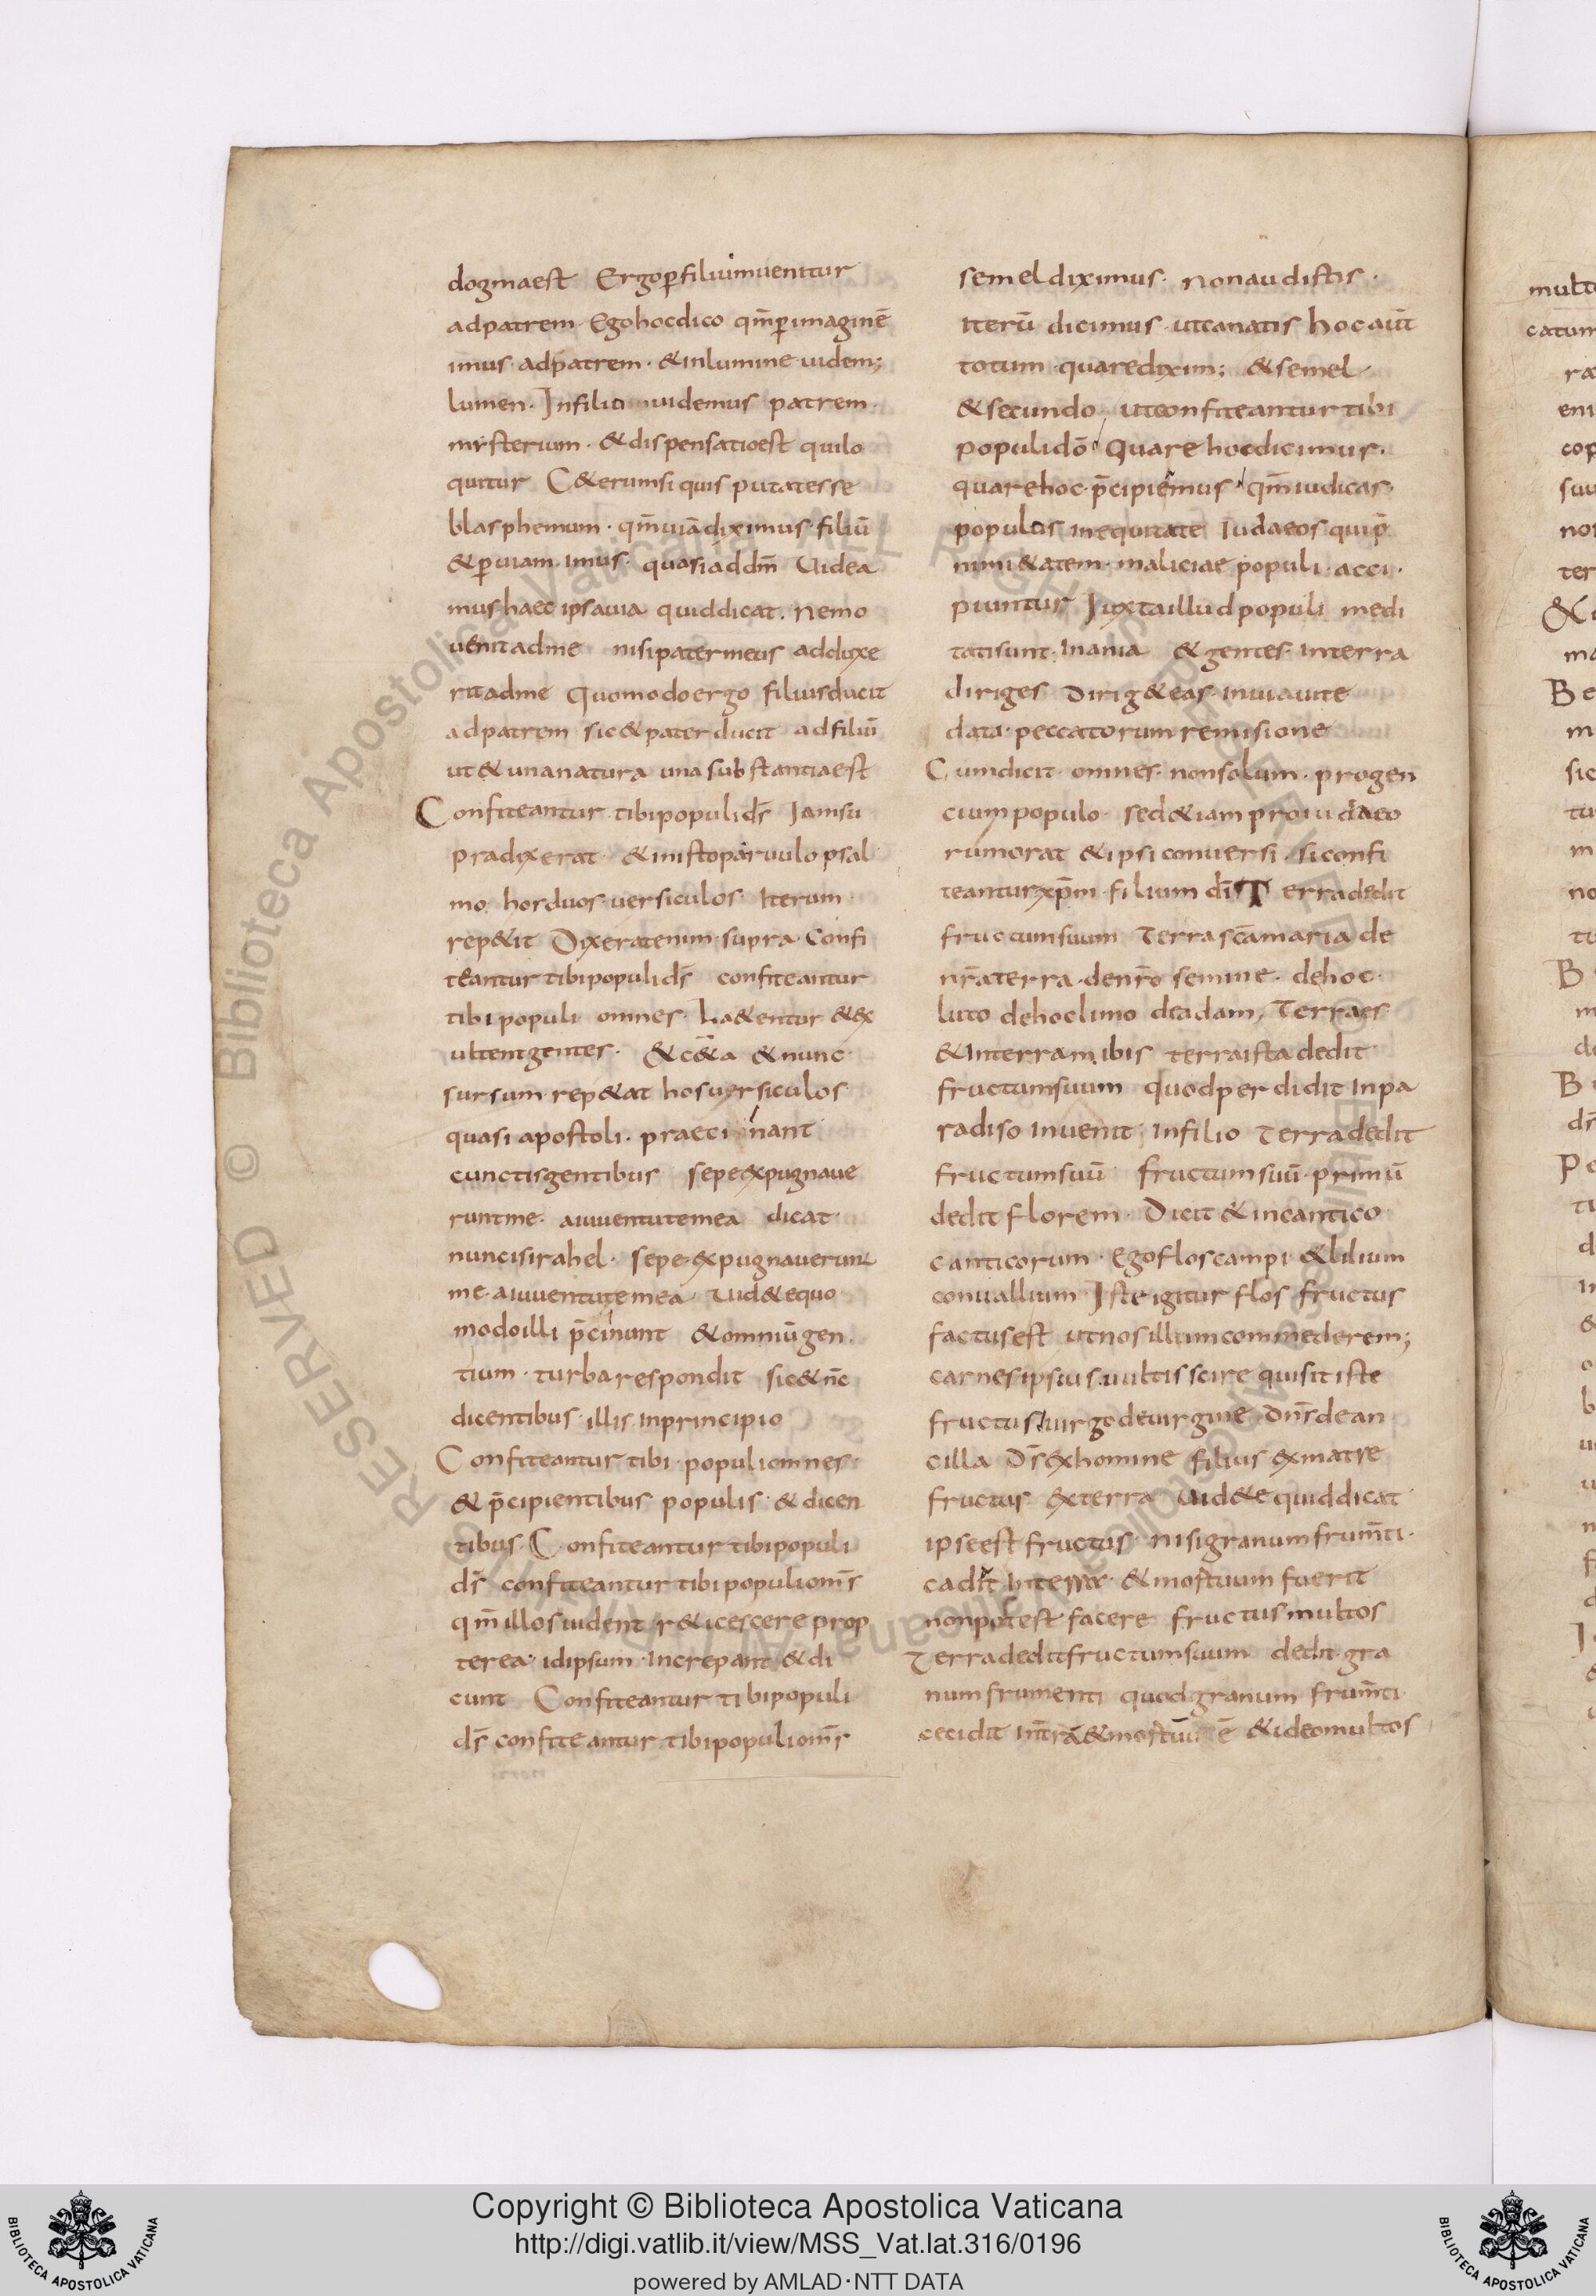 dogmaest Ergop̄filiuinuenitur
adpatrem· Egohocdico qm̄p̄imaginē
imus· adpatrem· &inlumine uidem;
lumen· Infilio uidemus patrem·
mysterium· &dispensatioest quilo
quitur C&erumsi quis putatesse
blasphemum· qm̄uiādiximus· filiū
&p̄uiam· imus· quasiaddm̄ Uidea
mushaec ipsauia quiddicat. Nemo
uenitadme nisipatermeus adduxe
ritadme Quomodoergo filiusducit
adpatrem sic&pater ducit adfiliū
ut&unanatura unasubstantiaest
Confiteantur tibipopulids̄ Iamsu
pradixerat· &inistoparuulo psal
mo hosduos uersiculos· Iterum
rep&it Dixeratenim· supra· Confi
teantur tibipopulids̄ confiteantur
tibi populi omnes· La&entur &ex
ultentgentes· &c&a &nunc·
sursum rep&at hosuersiculos
quasi apostoli· praecinant
cunctisgentibus sepeexpugnaue
runtme· aiuuentutemea dicat·
nuncisirahel· sepe·expugnauerunt
me·aiuuentutemea· Uid&equo
modoilli p̄cinunt &omniūgen·
tium· turbarespondit sic&nc̄
dicentibus· illis· Inprincipio
Confiteantur tibi· populiomnes·
&p̄cipientibus populis· &dicen
tibus· Confiteantur tibipopuli
ds̄ confiteantur tibi populiom̄s
qm̄illosuident r&icescere prop
terea· idipsum· increpant &di
cunt Confiteantur tibipopuli
ds̄ confiteantur tibipopuliom̄s
semeldiximus· Nonaudistis·
Iterū dicimus· utcanatis hocaut̄
totum· quaredixim; &semel·
&secundo utconfiteantur tibi
populidō Quare hocdicimus·
quarehoc·p̄cipiemus qm̄iudicas·
populus inequitate Iudaeos quip̄
nimi&atem· maliciae populi· acci·
piuntur Iuxtaillud populi medi
tatisunt· inania &gentes· interra
diriges Dirig&eas· inuiauite
data· peccatorumremisione
Cumdicit· omnes· nonsolum· progen
ciumpopulo· sed&iam proiudaeo
rumorat &ipsi conuersi· siconfi
teanturxp̄m· filium dī T erradedit
fructumsuum Terra sc̄amaria de
nr̄aterra·denr̄o semine· dehoc·
luto dehoclimo deadam, Terraes·
&interram ibis terraistadedit·
fructumsuum quodperdidit Inpa
radiso inuenit· infilio Terradedit
fructumsuū fructumsuū· primū
dedit florem· Dicit &incantico·
canticorum· Egofloscampi· &lilium
conuallium Iste igitur flos· fructus
factusest utnosillumcommederem;
carnesipsius uultis scire quisitiste
fructus, uirgodeuirgine Dn̄sdean
cilla Ds̄exhomine filius exmatre
fructus exterra Uid&equiddicat·
ipseest fructus· Nisigranum frum̄ti·
cadit interra· &mortuum fuerit
nonpotest facere fructusmultos
Terradeditfructumsuum dedit·gra
numfrumenti quodgranum frum̄ti·
cecidit int̄rā&mortuū ē &ideomultos
Copyright © Biblioteca Apostolica Vaticana
http://digi.vatlib.it/view/MSS_Vat.lat.316/0196
powered by AMLAD·NTT DATA